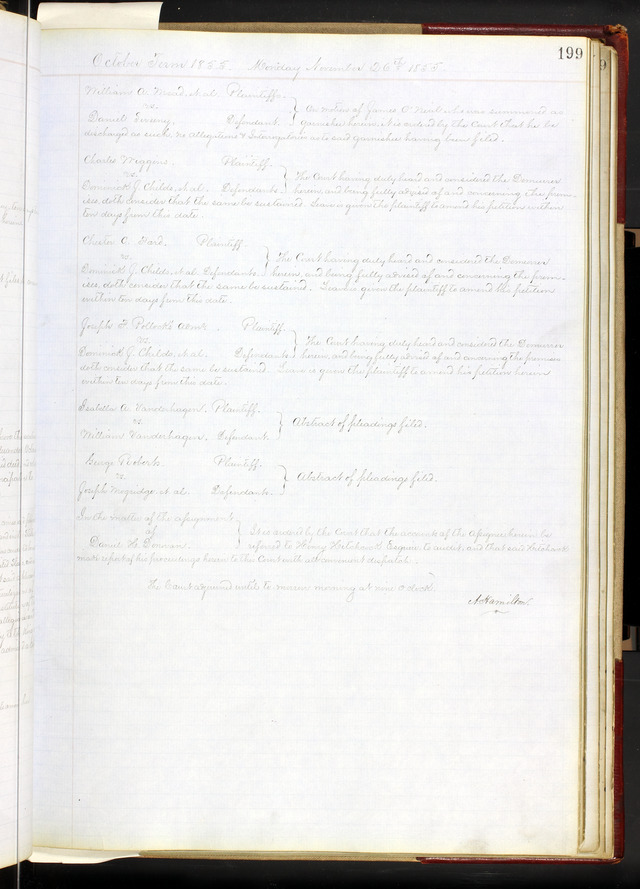 199
October Term 1855. Monday November 26th 1855
William A. et al Plaintiffs.
vs.
Daniel Defendant.
On motion of James O'Neil who was summoned as
garnishee herein, it is ordered by the Court that he be
discharged as such no allegations & Interrogatories as to said garnishee having been filed.
Charles Wiggins. Plaintiff
vs.
Dominick J. Childs, et al. Defendants
The Court having duly heard and considered the Demurrer
herein and being fully advised of and concerning the prem-
ises doth consider that the same be sustained. Leave is given the plaintiff to amend his petition within
ten days from this date.
Chester C. Plaintiff.
vs.
Dominick J. Childs, et al. Defendants.
The Court having duly heard and considered the Demurrer
herein, and being fully advised of and concerning the prem-
ises doth consider that the same be sustained. Leave is given the plaintiff to amend his petition
within ten days from this date.
Joseph F. Pollock's Admr. Plaintiff.
vs.
Dominick J. Childs, et al. Defendants
The Court having duly heard and considered the Demurrer
herein, and being fully advised of and concerning the premises
doth consider that the same be sustained. Leave is given the plaintiff to amend his petition herein
within ten days from this date.
Isabella A. Vanderhagen. Plaintiff.
vs
William Vanderhagen. Defendant.
Abstract of pleadings filed.
George Roberts. Plaintiff.
vs.
Joseph et al. Defendants.
Abstract of pleadings filed.
In the matter of the assignment
of
Daniel H. Donovan.
It is ordered by the Court that the accounts of the assignee herein be
referred to Henry Hitchcock Esquire to audit, and that said Hitchcock
make report of his proceedings herein to the Court with all convenient despatch.
The Court adjourned until to morrow morning at nine o'clock.
A. Hamilton.